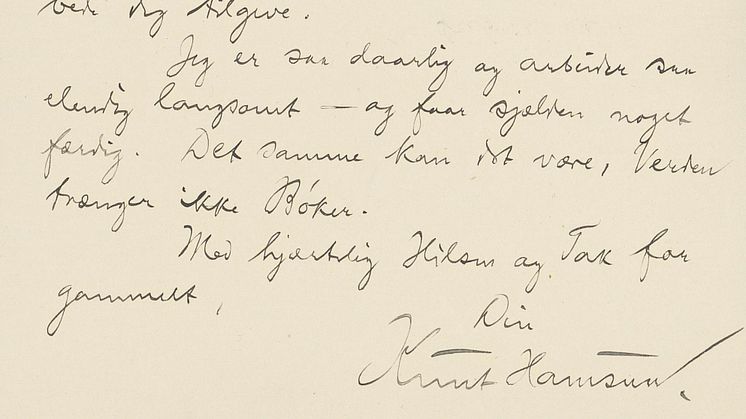 bede dig tilgive.
Jeg er saa daarlig og arbeider saa
elendig langsomt — og faar sjælden noget
færdig. Det samme kan det være, Verden
trænger ikke Bøker.
Med hjærtelig Hilsen og Tak for
gammelt,
Din
Knut Hamsun.